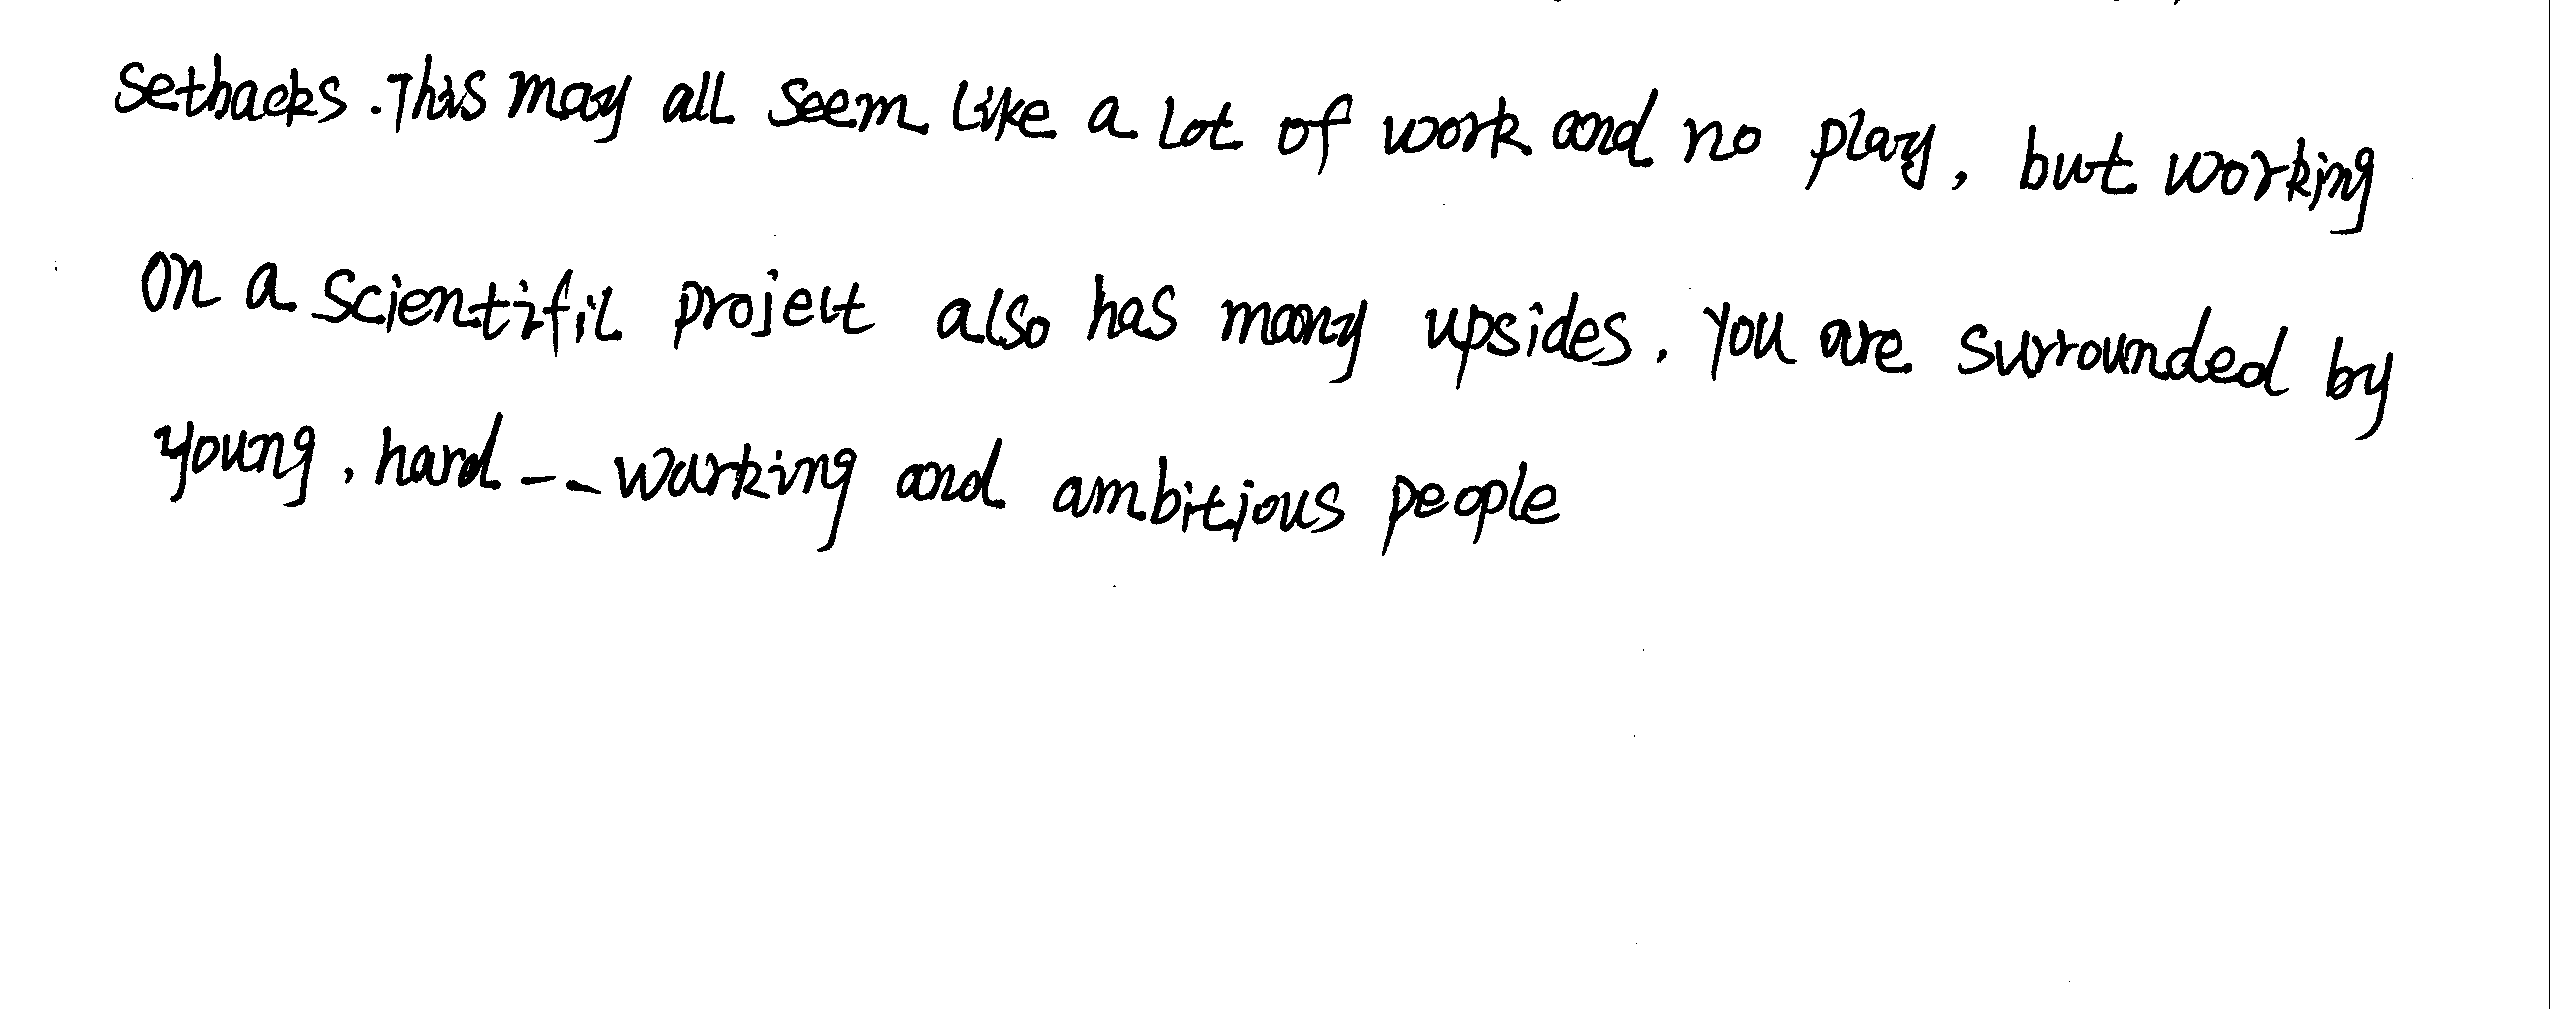 setbacks. This may all seem like a lot of work and no play, but working
on a scientific project also has many upsides. You are surrounded by
young, hard--working and ambitious people